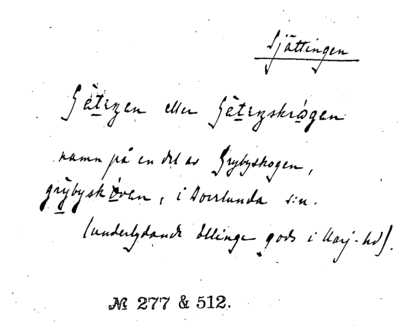 Sjättingen
Sätryen eller Sätryskrògen
namn på en del av Grybyskogen,
gryby skòven, i Överlunda s:n.
(underlydande Ellinge gods i Harj-hd).
№ 277 & 512.